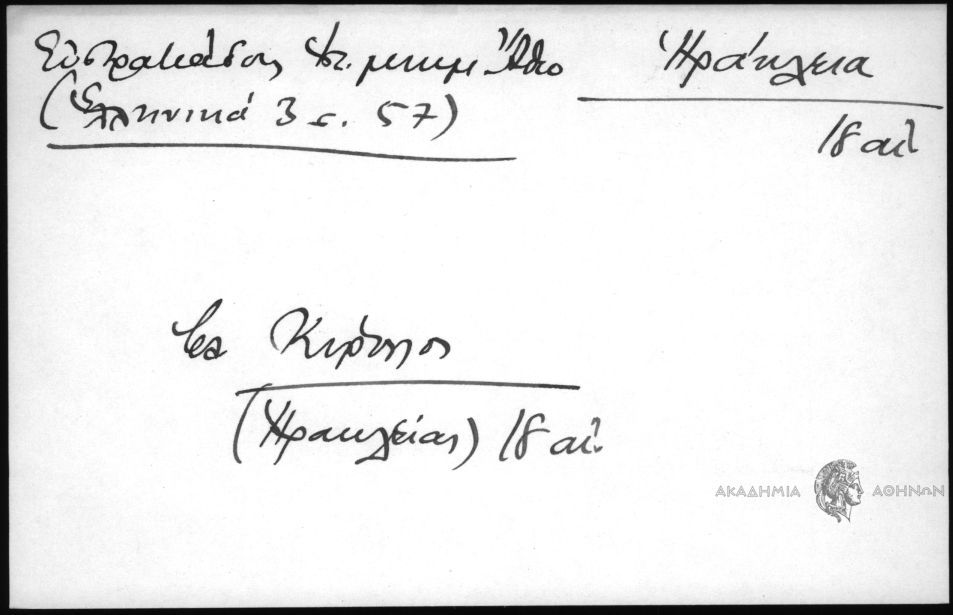 Εὐστρατιάδης Ἱστ. μνημ. Ἄθω
(Ἑλληνικά 3 σ. 57)
Ἡράκλεια
18 αἰ.
Κύριλλος
(Ἡρακλείας) 18 αἰ.
ΑΚΑΔΗΜΙΑ ΑΘΗΝΩΝ